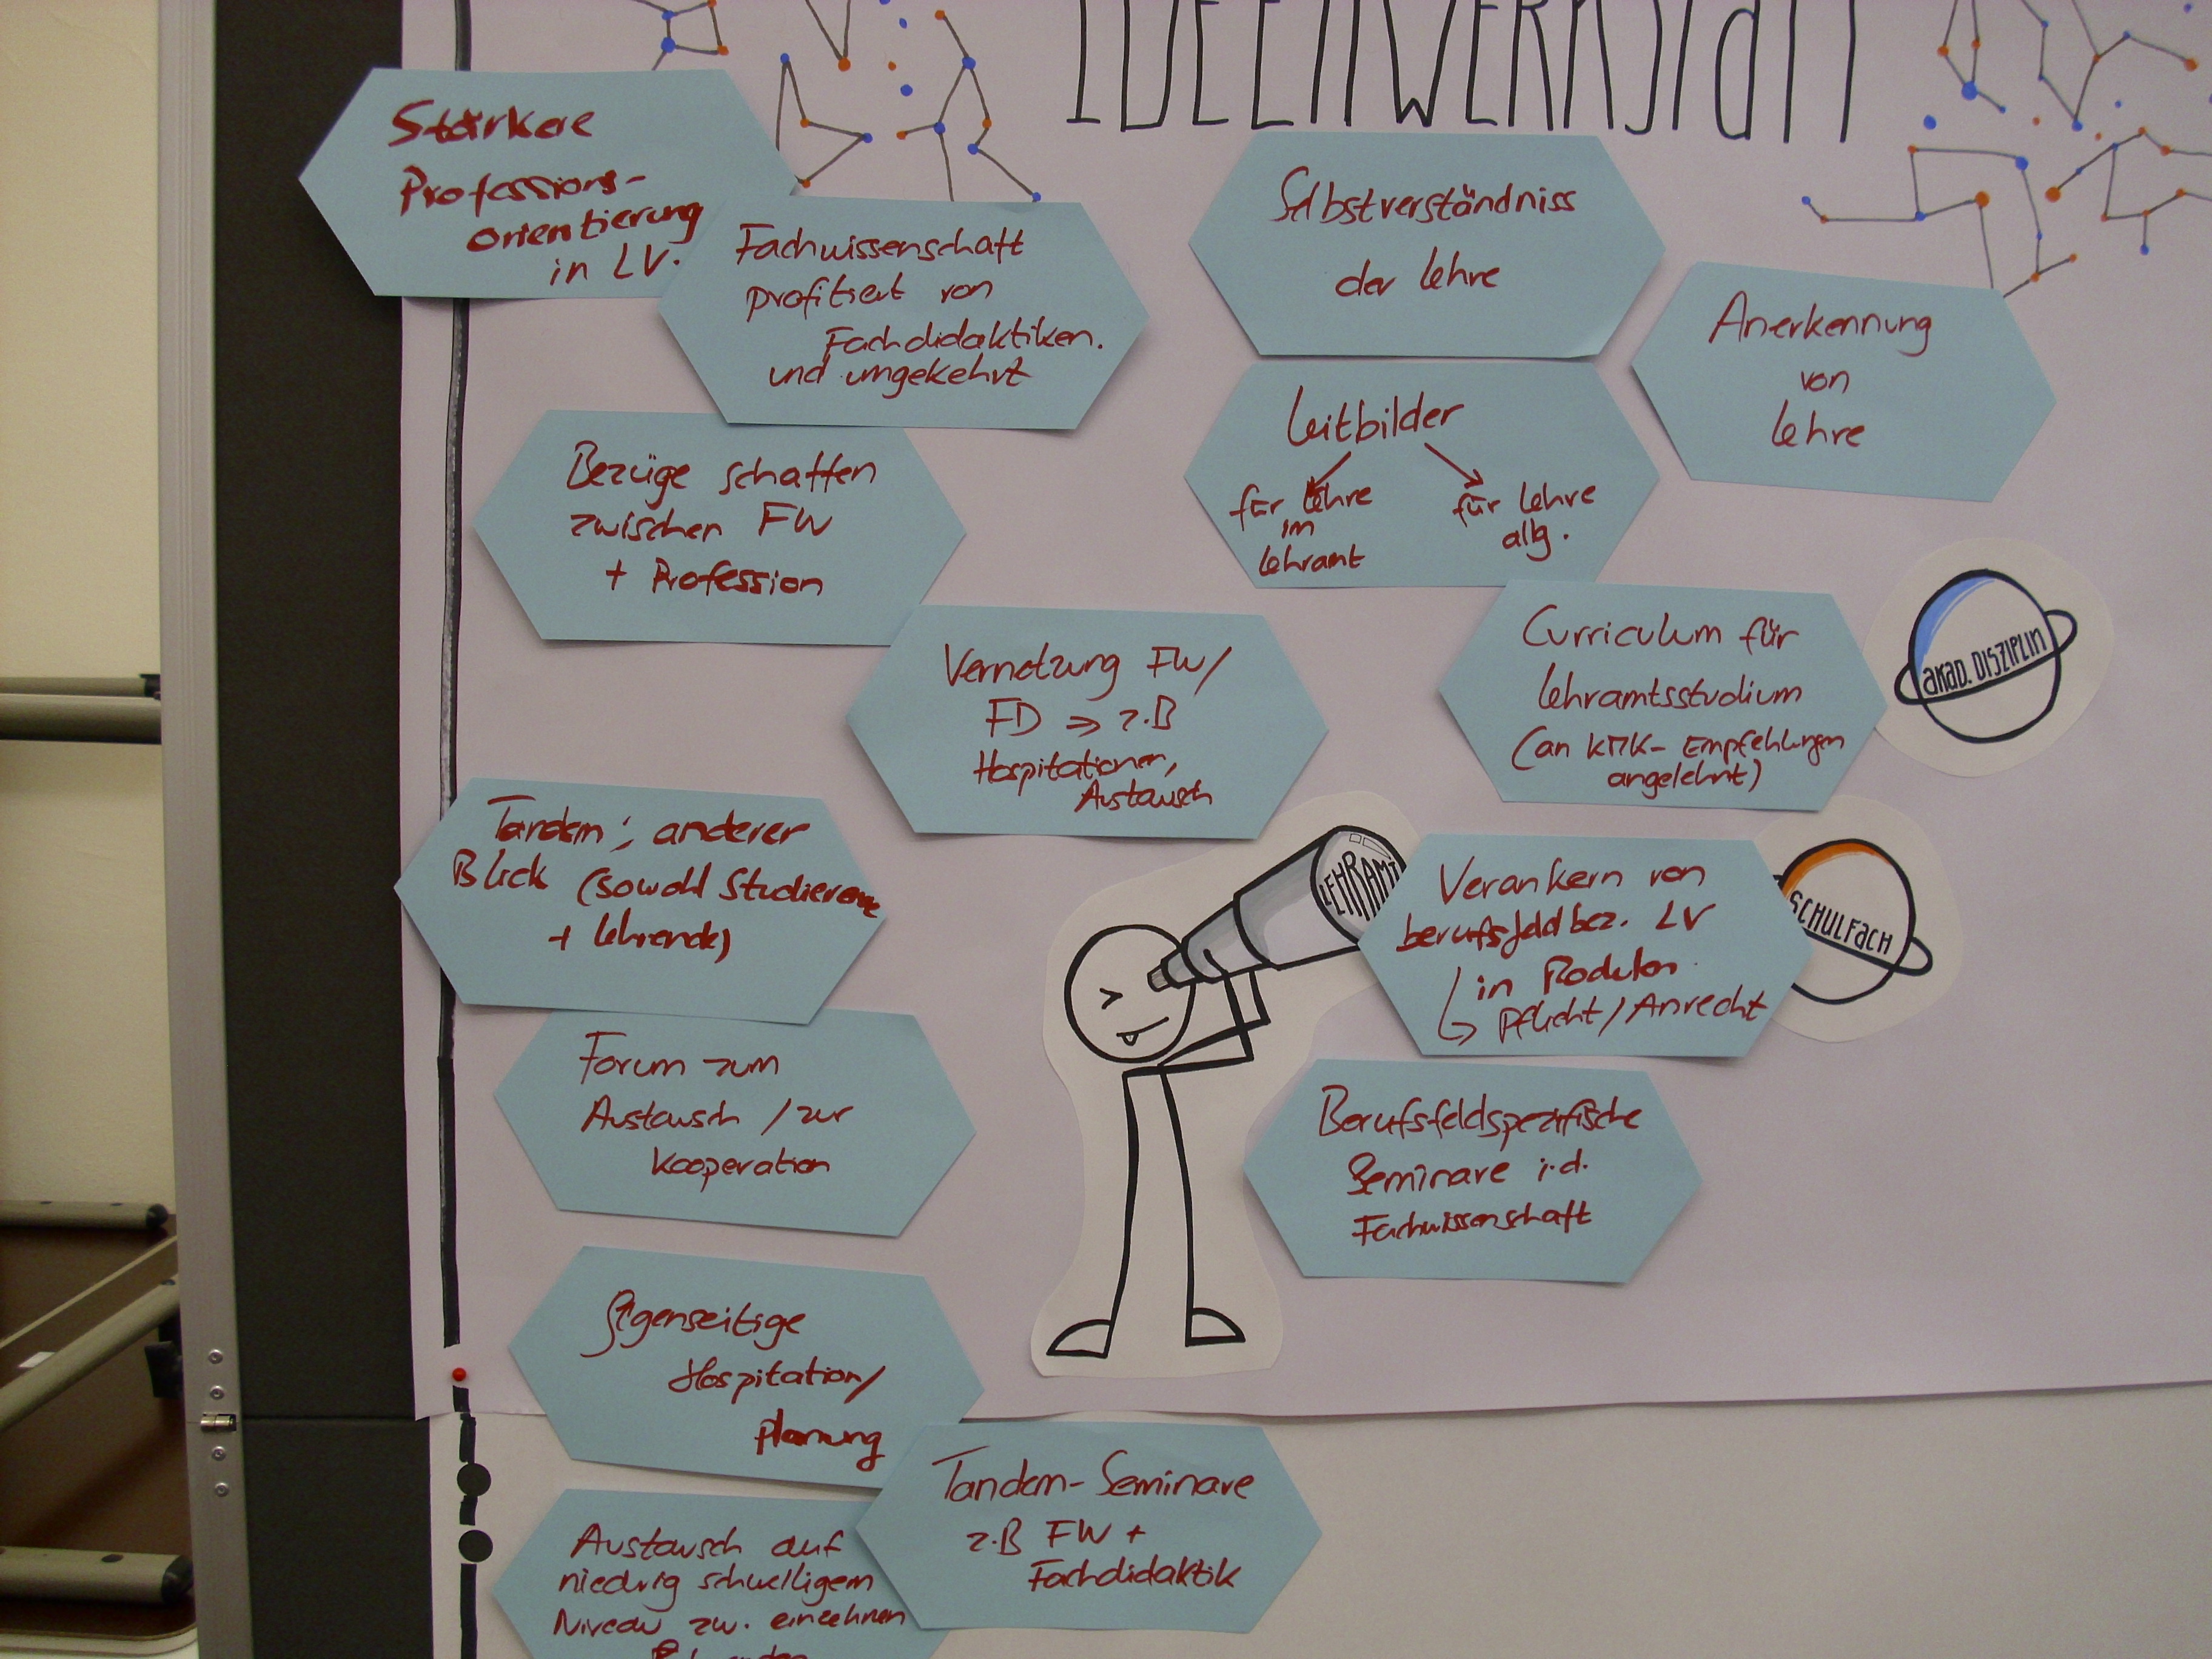 IDEENWERKSTATT
Stärkere
Professions-
orientierung
in LV.
Fachwissenschaft
profitiert von
Fachdidaktiken.
und umgekehrt
Selbstverständniss
der Lehre
Anerkennung
von
Lehre
Leitbilder
für Lehre
im
Lehramt
für Lehre
allg.
Bezüge schaffen
zwischen FW
+ Profession
Vernetzung FW/
FD => z.B
Hospitationen,
Austausch
Curriculum für
Lehramtsstudium
(an KMK- Empfehlungen
angelehnt)
AKAD. DISZIPLIN
Tandem; anderer
Blick (sowohl Studierende
+ Lehrende)
LEHRAMT
Verankern von
berufsfeldbez. LV
in Modulen
Pflicht/Anrecht
SCHULFACH
Forum zum
Austausch / zur
Kooperation
Berufsfeldspezifische
Seminare i.d.
Fachwissenschaft
gegenseitige
Hospitation/
planung
Tandem-Seminare
z.B FW +
Fachdidaktik
Austausch auf
niedrig schwelligem
Niveau zw. einzelnen